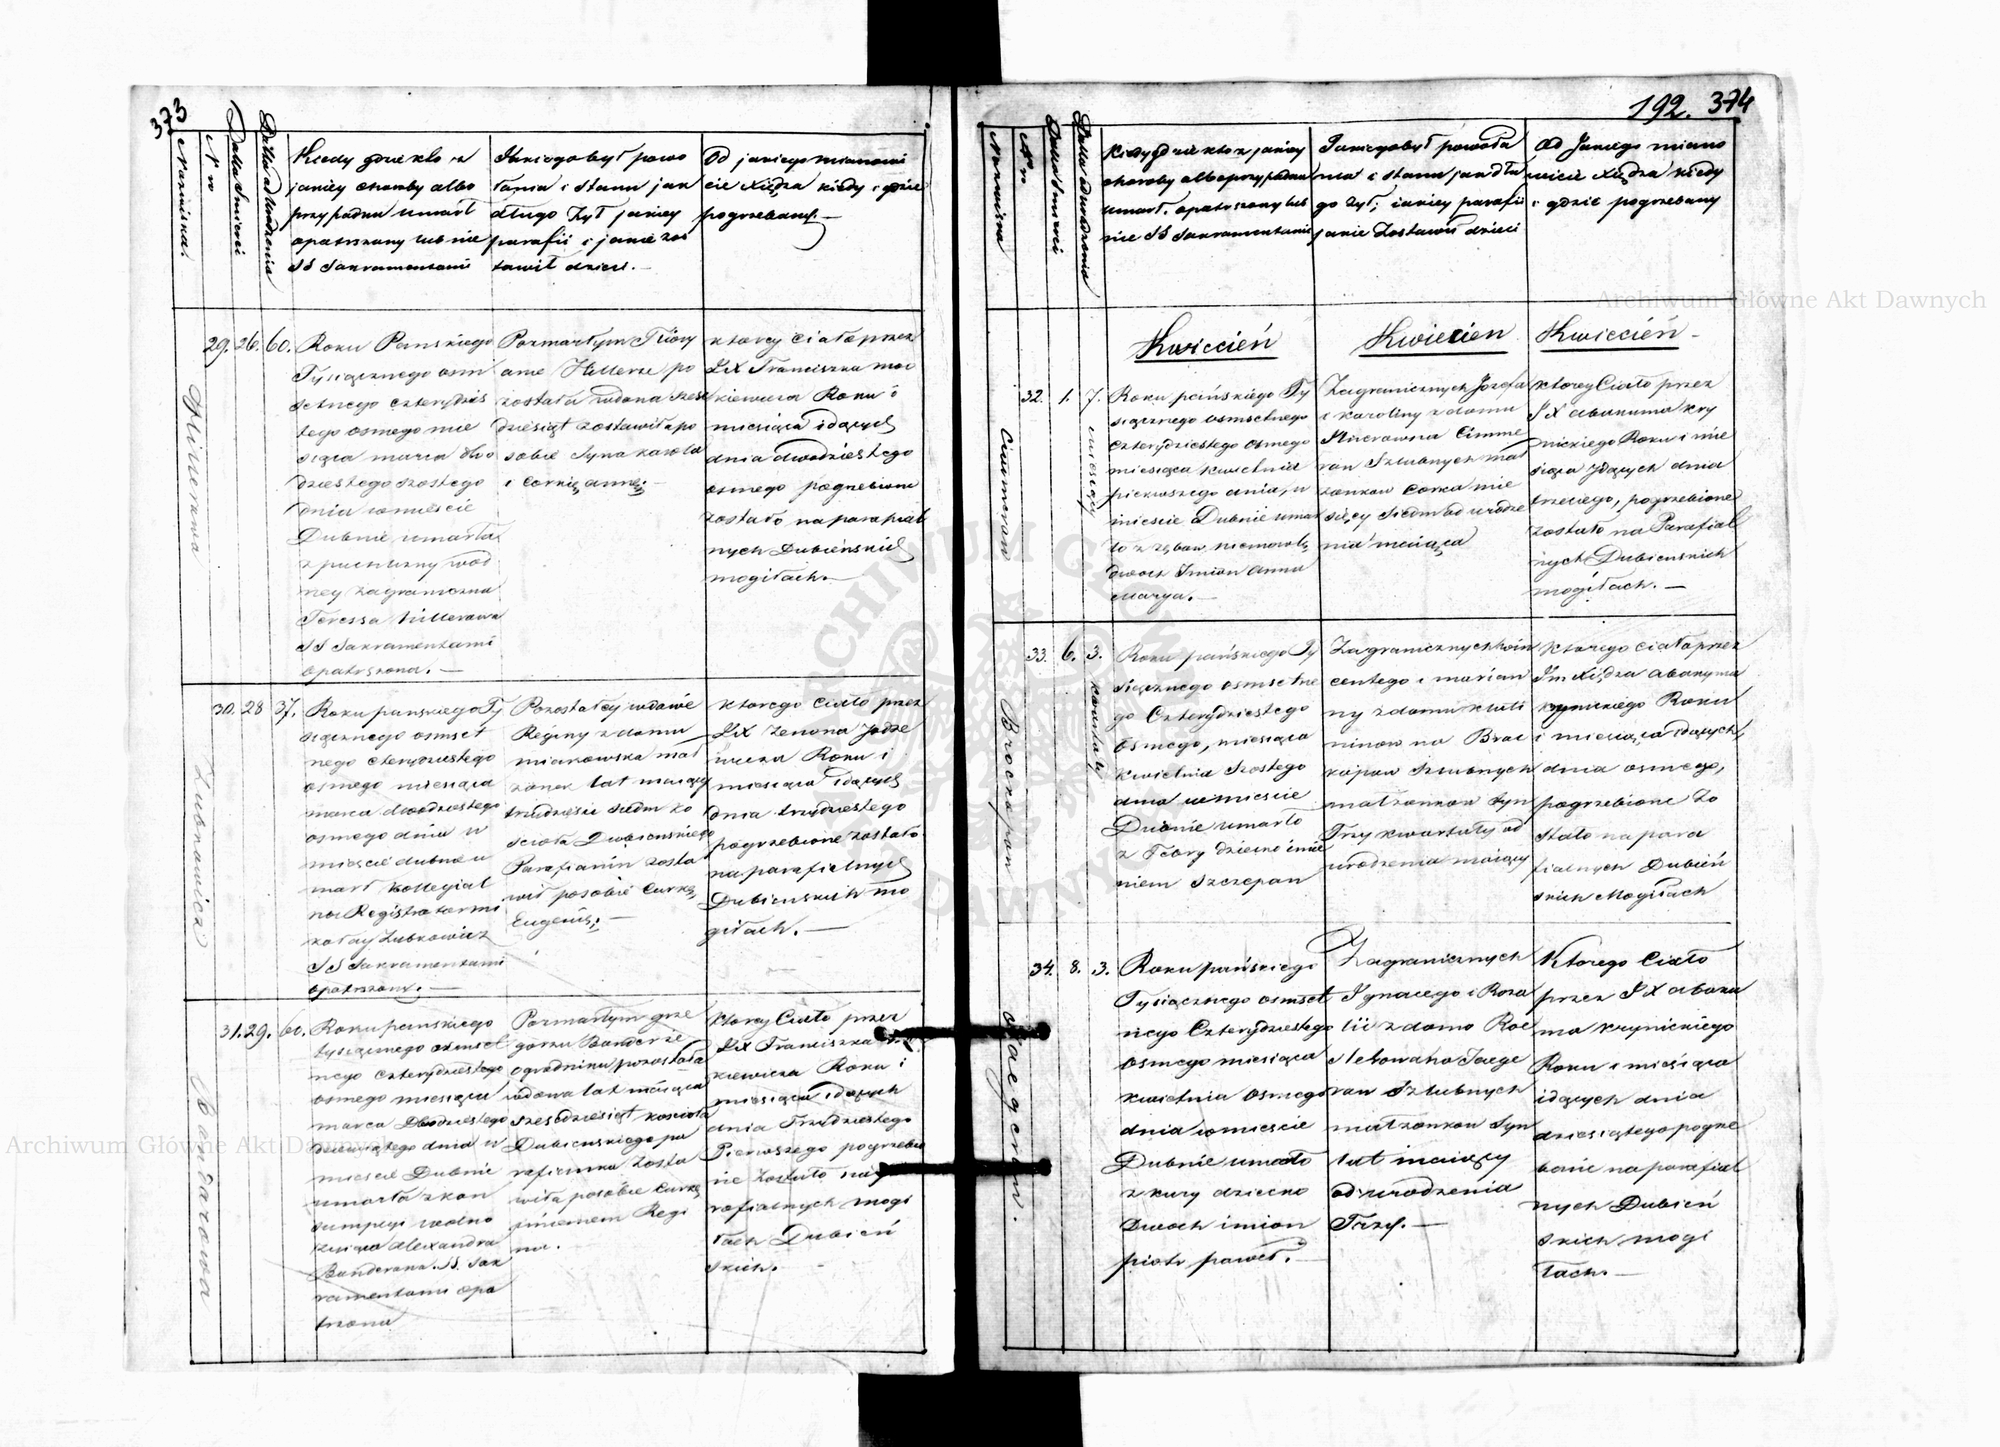 373
Nazwiska.
Nro
Datta Śmierci
Datta Urodzenia
Kiedy gdzie kto z
jakiey choroby albo
przypadku umarł
opatrzony lub nie
SS Sakramentami
Jakiego był powo
łania i stanu jak
długo żył jakiey
parafii i jakie zos
tawił dzieci.—
Od jakiego mianowi
cie Xiędza kiedy i gdzie
pogrzebany.—
29. 26. 60.
Hillerowa
Roku Panskiego
Tysiącznego osm
setnego czterydzies
tego osmego mie
siąca marca dwo
dziestego szostego
dnia w mieście
Dubnie umarła
z puchliny wod
ney zagraniczna
Teressa Hillerowa
SS Sakramentami
opatrszona.—
Pozmarłym
Hillerze po
została wdowa szesc
dziesiąt zostawiła po
sobie Syna Karola
i Corkię annę.—
ktorey Ciało przez
JX Franciszka
Roku i
miesiąca idących
dnia dwadziestego
osmego pogrzebione
zostało na parafial
nych Dubieńskich
mogiłach.—
30. 28 37.
Zubkowicz
Roku panskiego Ty
siącznego osmset
nego czterydziestego
osmego miesiąca
marca dwadziestego
osmego dnia w
mieście dubno u
marł Kollegial
ny Registrator mi
kołay Zubkowicz
SS Sakramentami
opatrszony.—
Pozostałey wdowie
Reginy z domu
mianowska mał
zonek lat maiący
trzydzieści siedm ko
scioła Dubienskiego
Parafianin zosta
wił posobie Curkę
Eugenię.—
Ktorego Ciało przez
JX Zenona Jodze
wicza Roku i
miesiąca idących
dnia trzydziestego
pogrzebione zostało
na parafialnych
Dubienskich mo
giłach.—
31. 29. 60.
Banderowa
Roku panskiego
tysiącznego osmset
nego czterydziestego
osmego miesiąca
marca dwadziestego
dziewiątego dnia w
mieście Dubnie
umarła z kon
sumpcyi wolno
Alexandra
Banderowa. SS. Sak
ramentami opa
trzona
Pozmarłym grze
gorzu Banderze
ogrodniku pozostała
wdowa lat maiąca
sześcdziesiąt kościoła
Dubienskiego pa
rafianka zosta
wiła posobie Curkę
imieniem Regi
na.
Ktorey Ciało przez
JX Franciszka
kiewicza Roku i
miesiąca idących
dnia Trzydziestego
Pierwszego pogrzebio
ne zostało na pa
rafialnych mogi
łach Dubień
skich.
192. 374
Nazwiska
Nro
Datta Śmierci
Datta Urodzenia
Kiedy gdzie kto z jakiey
choroby albo przypadku
umarł. opatrszony lub
nie SS Sakramentami
Jakiego był powoła
nia i stanu jak dłu
go żył; iakiey parafii
jakie zostawił dzieci
Od Jakiego miano
wicie Xiędza kiedy
i gdzie pogrzebany
Kwiecień
Kwiecien
Kwiecień—
32. 1. 7. miesięcy
Cimmeran
Roku pańskiego Ty
siącznego osmsetnego
Czterydziestego osmego
miesiąca kwietnia
pierwszego dnia, w
mieście Dubnie umar
ło z zębow niemowlę
dwoch Imion Anna
Marya.—
Zagranicznych Jozefa
i Karoliny z domu
Cimme
ran Szlubnych mał
żonkow Corka mie
sięcy siedm od urodze
nia maiąca
Ktorey Ciało przez
JX abakuma kry
nickiego Roku i mie
siąca idących dnia
trzeciego, pogrzebione
zostało na Parafial
nych Dubienskich
mogiłach.—
33. 6. 3. kwartały
Brockopan
Roku pańskiego Ty
siącznego osmsetne
go Czterydziestego
osmego, miesiąca
kwietnia szostego
dnia w mieście
Dubnie umarło
z Febry dziecko imie
niem Szczepan
Zagranicznych Win
centego i marian
ny z domu
na Broc
kopan Szlubnych
małżonkow syn
Trzy kwartały od
urodzenia maiący
Ktorego Ciało przez
Jm Xiędza abakuma
krynickiego Roku
i miesiąca idących,
dnia osmego,
pogrzebione zo
stało na para
fialnych Dubień
skich Mogiłach
34. 8. 3.
Jaegeran.
Roku pańskiego
Tysiącznego osmset
nego Czterydziestego
osmego miesiąca
kwietnia osmego
dnia w mieście
Dubnie umarło
z kury dziecko
Dwoch imion
piotr paweł.—
Zagranicznych
Ignacego i Roza
lii z domo
Jaege
ran Szlubnych
małżonkow Syn
lat maiący
od urodzenia
Trzy.—
Ktorego Ciało
przez JX abaku
ma krynickiego
Roku i miesiąca
idących dnia
dziesiątego pogrze
bione na parafial
nych Dubień
skich mogi
łach.—
Archiwum Główne Akt Dawnych
Archiwum Główne Akt Dawnych